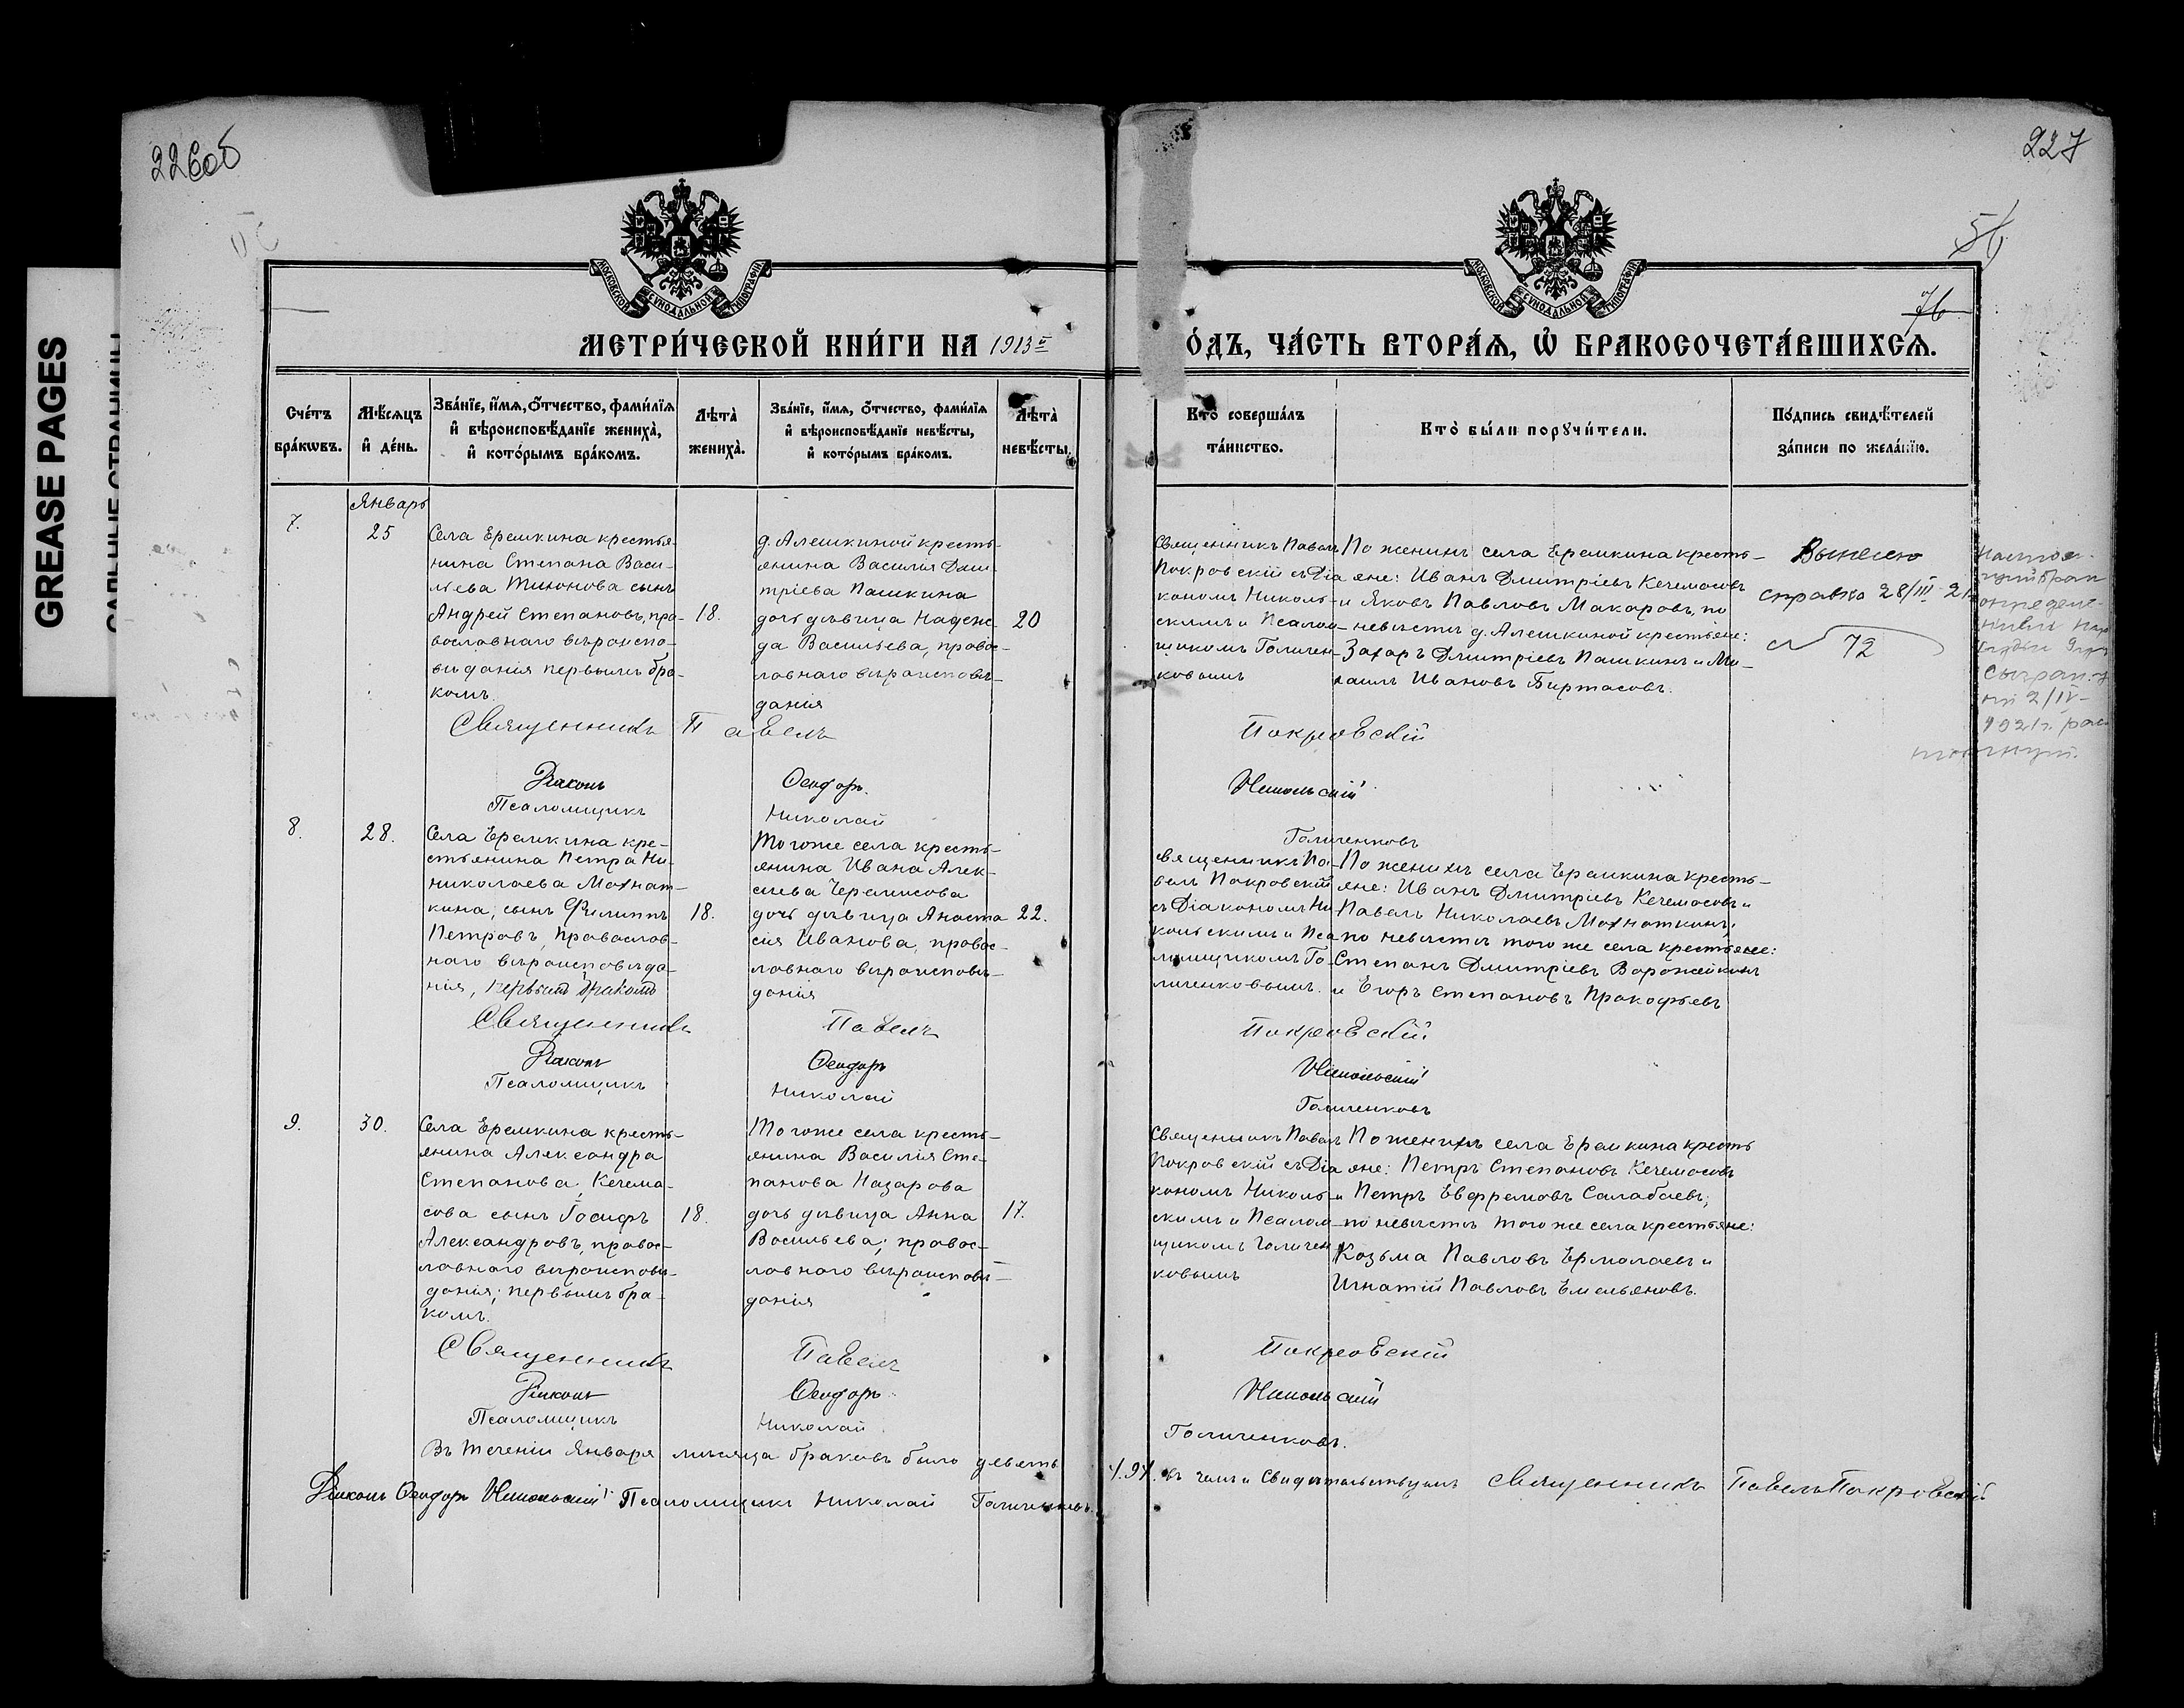 226об
227
GREASE PAGES
56
76
МОСКОВСКОЙ СѴНОДАЛЬНОЙ ТИПОГРАФІИ
МОСКОВСКОЙ СѴНОДАЛЬНОЙ ТИПОГРАФІИ
МЕТРИ́ЧЕСКОЙ КНИ́ГИ НА 1913й
О́ДЪ, ЧА́СТЬ ВТОРА́Ѧ, Ѡ҆ БРАКОСОЧЕТА́ВШИХСѦ.
Сче́тъ бра́кѡвъ.
Мѣ́сяцъ и҆ де́нь.
Зва́нїе, и҆́мѧ, ѻ҆́тчество, фами́лїѧ и҆ вѣроисповѣ́данїе жениха̀, и҆ кото́рымъ бра́комъ.
Лѣта̀ жениха̀.
Зва́нїе, и҆́мѧ, ѻ҆́тчество, фами́лїѧ и҆ вѣроисповѣ́данїе невѣ́сты, и҆ кото́рымъ бра́комъ.
Лѣта̀ невѣ́сты.
Кто̀ соверша́лъ та́инство.
Кто̀ бы́ли порꙋчи́тели.
По́дпись свидѣ́телей за́писи по жела́нїю.
Январь
7.
25
Села Еремкина крестья-
нина Степана Васи-
льева Тихонова сынъ
Андрей Степановъ, пра-
вославнаго вѣроиспо-
вѣданія первымъ бра-
комъ.
18.
д. Алешкиной кресть-
янина Василія Дми-
тріева Пашкина
дочь дѣвица Надеж-
да Васильева, правос-
лавнаго вѣроисповѣ-
данія
20
Священникъ Павелъ
Покровскій съ Діа
кономъ Николь-
скимъ и Псалом-
щикомъ Голичен-
ковымъ
По женихѣ села Еремкина кресть-
яне: Иванъ Дмитріевъ Кечемасовъ
и Яковъ Павловъ Макаровъ, по
невѣстѣ д. Алешкиной крестьяне:
Захаръ Дмитріевъ Пашкинъ и Ми-
хаилъ Ивановъ Биртасовъ.
справка 28/III 21
№ 72
2/IV-
1921г.
Священникъ Павелъ Покровскій
Діаконъ Ѳеодоръ Никольскій
Псаломщикъ Николай Голиченковъ
8.
28.
Села Еремкина кре-
стьянина Петра Ни-
николаева Мохнат-
кина, сынъ Филиппъ
Петровъ, православ-
наго вѣроисповѣда-
нія, первымъ бракомъ
18.
Тогоже села кресть-
янина Ивана Алек-
сѣева Черемисова
дочь дѣвица Анаста
сія Иванова, правос-
лавнаго вѣроисповѣ-
данія
22.
священникъ Па-
велъ Покровскій
съ Діакономъ Ни-
кольскимъ и Пса
ломщикомъ Го-
личенковымъ.
По женихѣ села Еремкина кресть-
яне: Иванъ Дмитріевъ Кечемасовъ и
Павелъ Николаевъ Мохнаткинъ;
по невѣстѣ того же села крестьяне:
Степанъ Дмитріевъ Ворожейкинъ
и Егоръ Степановъ Прокофьевъ
Священникъ Павелъ Покровскій
Діаконъ Ѳеодоръ Никольскій
Псаломщикъ Николай Голиченковъ
9.
30.
Села Еремкина кресть-
янина Александра
Степанова Кечема-
сова сынъ Іосифъ
Александровъ, правос-
лавнаго вѣроисповѣ-
данія; первымъ бра-
комъ.
18.
Тогоже села кресть-
янина Василія Сте-
панова Назарова
дочь дѣвица Анна
Васильева; правос-
лавнаго вѣроисповѣ-
данія
17.
Священникъ Павелъ
Покровскій съ Діа
кономъ Николь-
скимъ и Псалом-
щикомъ Голичен
ковымъ
По женихѣ села Еремкина кресть
яне: Петръ Степановъ Кечемасовъ
и Петръ Евфремовъ Салабаевъ;
по невѣстѣ того же села крестьяне:
Козьма Павловъ Ермолаевъ и
Игнатій Павловъ Емельяновъ.
Священникъ Павелъ Покровскій
Діаконъ Ѳеодоръ Никольскій
Псаломщикъ Николай Голиченковъ.
Въ теченіи Января мѣсяца браковъ было девять /9/. въ чемъ и Свидѣтельствуемъ Священникъ Павелъ Покровскій
Діаконъ Ѳеодоръ Никольскій Псаломщикъ Николай Голиченковъ.